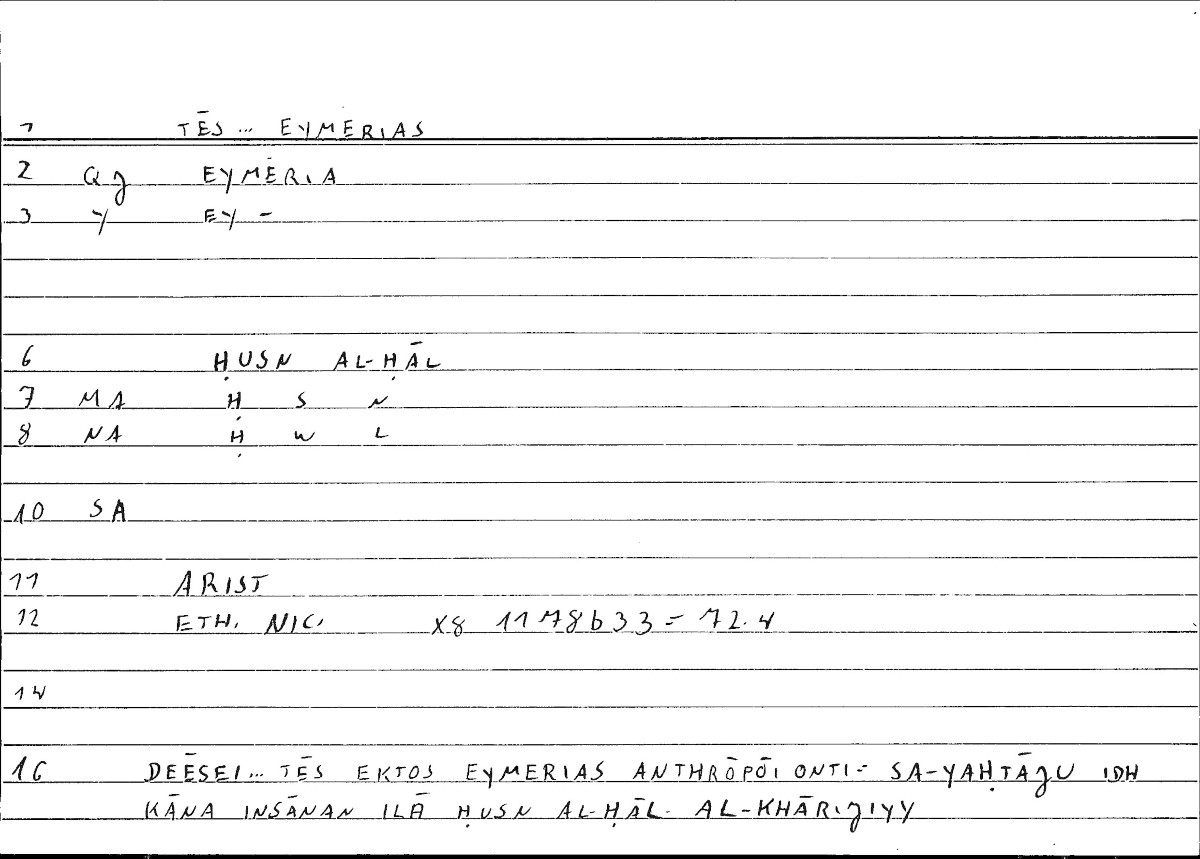 1 TĒS... EYMERIAS
2 Qg EYMĒRIA
3 Y EY-
6 ḤUSN AL-ḤĀL
7 MA Ḥ S N
8 NA Ḥ W L
10 SA
11 ARIST
12 ETH. NIC. X8 1178b33 = 72.4
14
16 DEĒSEI... TĒS EKTOS EYMERIAS ANTHRŌPŌI ONTI = SA-YAḤTĀgU IDH
KĀNA INSĀNAN ILĀ ḤUSN AL-ḤĀL AL-KHĀRIgIYY